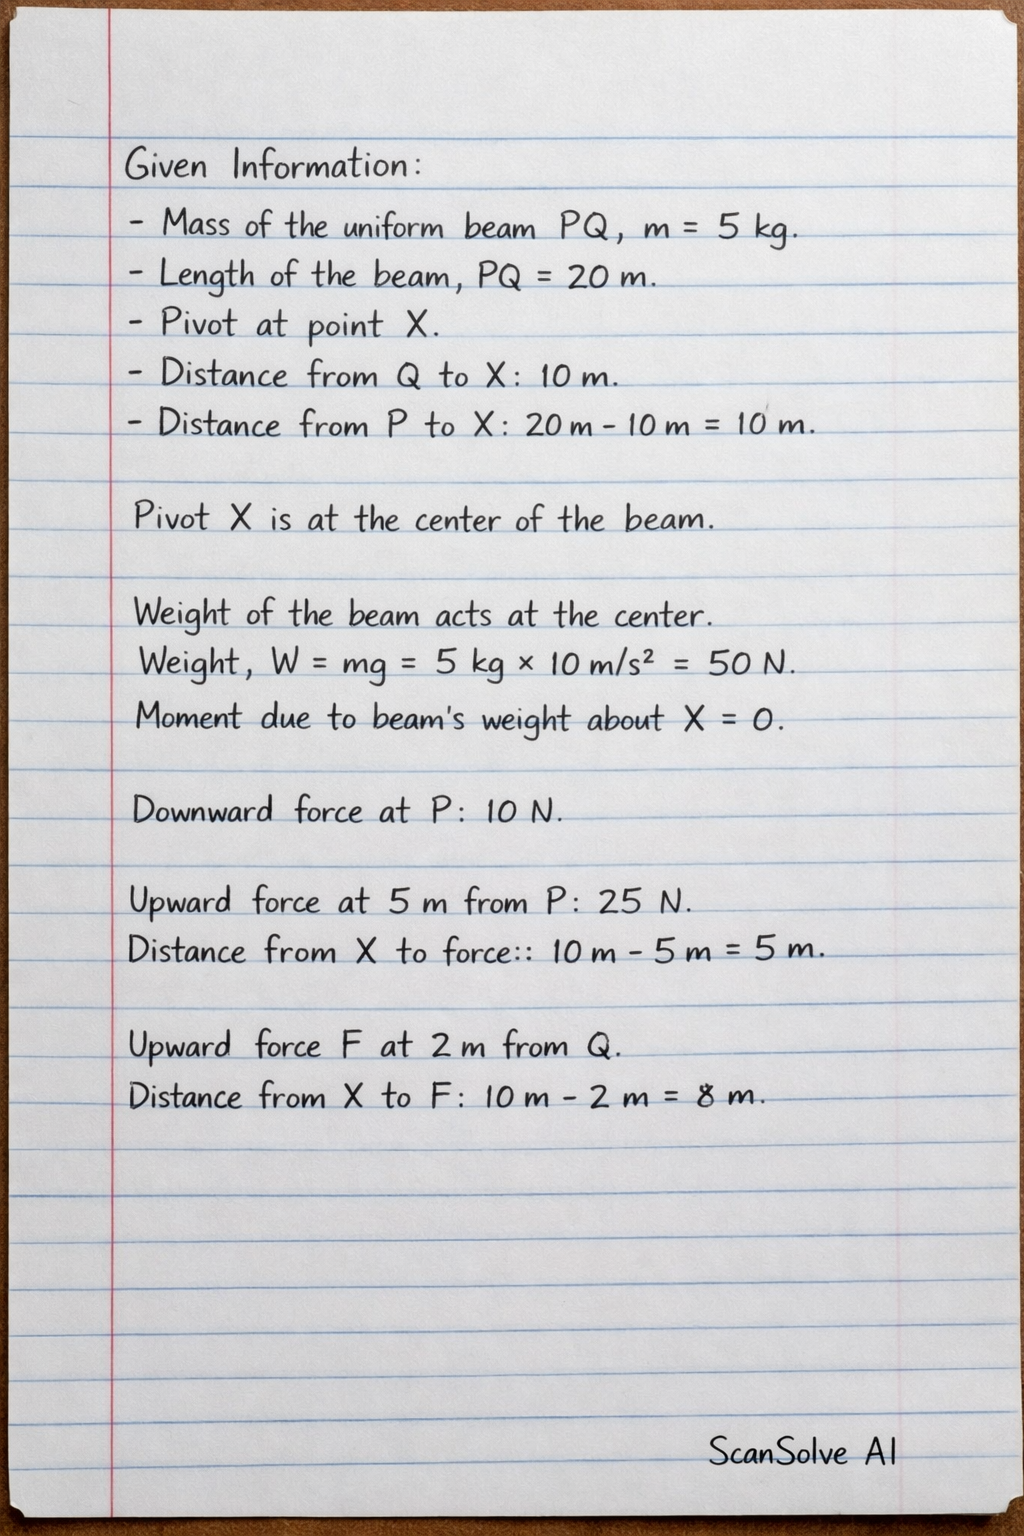 Given Information:
- Mass of the uniform beam PQ, m = 5 kg.
- Length of the beam, PQ = 20 m.
- Pivot at point X.
- Distance from Q to X: 10 m.
- Distance from P to X: 20 m - 10 m = 10 m.
Pivot X is at the center of the beam.
Weight of the beam acts at the center.
Weight, W = mg = 5 kg × 10 m/s² = 50 N.
Moment due to beam's weight about X = 0.
Downward force at P: 10 N.
Upward force at 5 m from P: 25 N.
Distance from X to force:: 10 m - 5 m = 5 m.
Upward force F at 2 m from Q.
Distance from X to F: 10 m - 2 m = 8 m.
ScanSolve AI